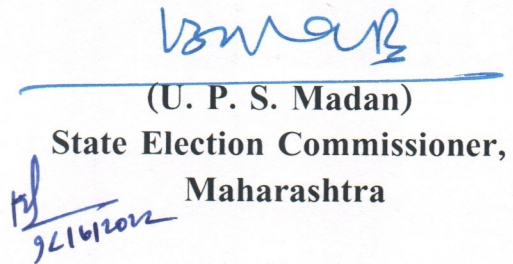 (U. P. S. Madan)
State Election Commissioner,
Maharashtra